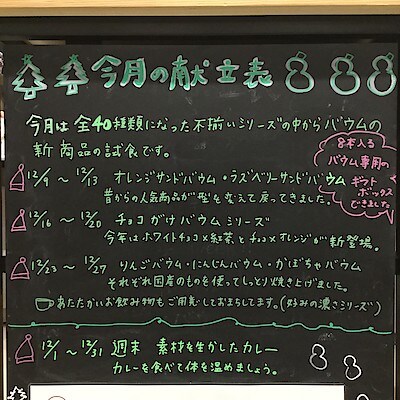 今月の献立表
今月は全40種類になった不揃いシリーズの中からバウムの
新商品の試食です。
8本入る
バウム専用の
ギフト
ボックス
できました
12/9 ～ 12/13 オレンジサンドバウム・ラズベリーサンドバウム
昔からの人気商品が型を変えて戻ってきました。
12/16 ～ 12/20 チョコがけバウムシリーズ
今年はホワイトチョコ×紅茶とチョコ×オレンジが新登場。
12/23 ～ 12/27 りんごバウム・にんじんバウム・かぼちゃバウム
それぞれ国産のものを使ってしっとり焼き上げました。
あたたかいお飲み物もご用意しておまちしてます。(好みの濃さシリーズ)
12/1 ～ 12/31 週末 素材を生かしたカレー
カレーを食べて体を温めましょう。